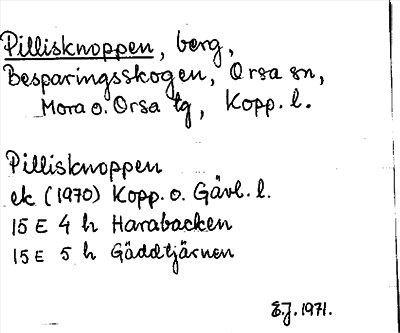 Pillisknoppen, berg,
Besparingsskogen, Orsa sn,
Mora o. Orsa tg, Kopp. l.
Pillisknoppen
ek (1970) Kopp. o. Gävl. l.
15 E 4 h Harabacken
15 E 5 h Gäddtjärnen
E.J. 1971.